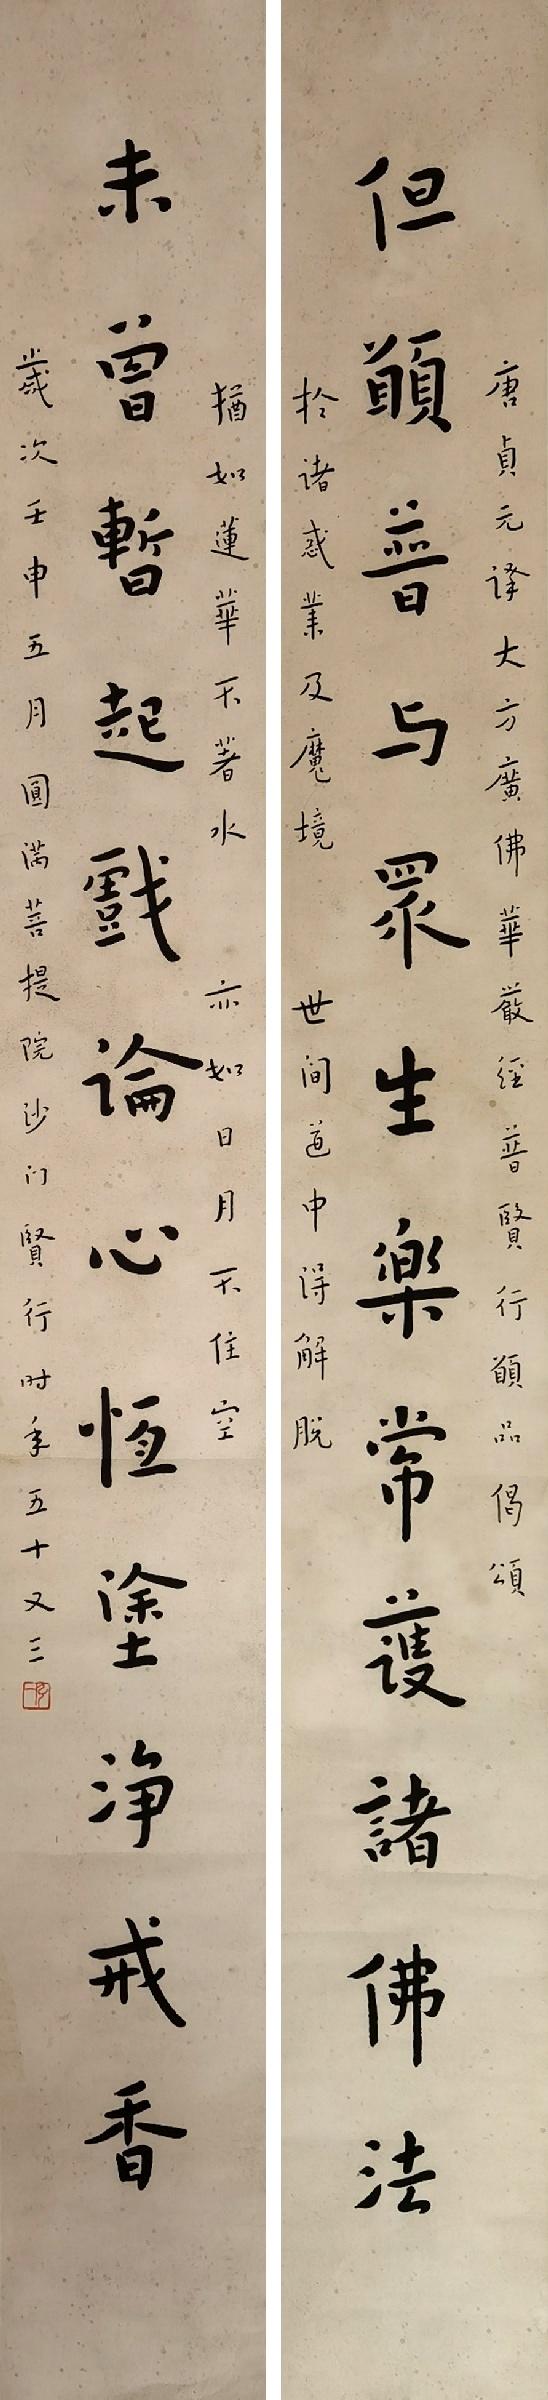 唐貞元譯大方廣佛華嚴經普賢行願品偈頌
但願普与眾生樂常護諸佛法
於諸惑業及魔境 世间道中得解脫
猶如蓮華不著水 亦如日月不住空
未曾暫起戲論心恆塗淨戒香
歲次壬申五月圓满菩提院沙门賢行时年五十又三